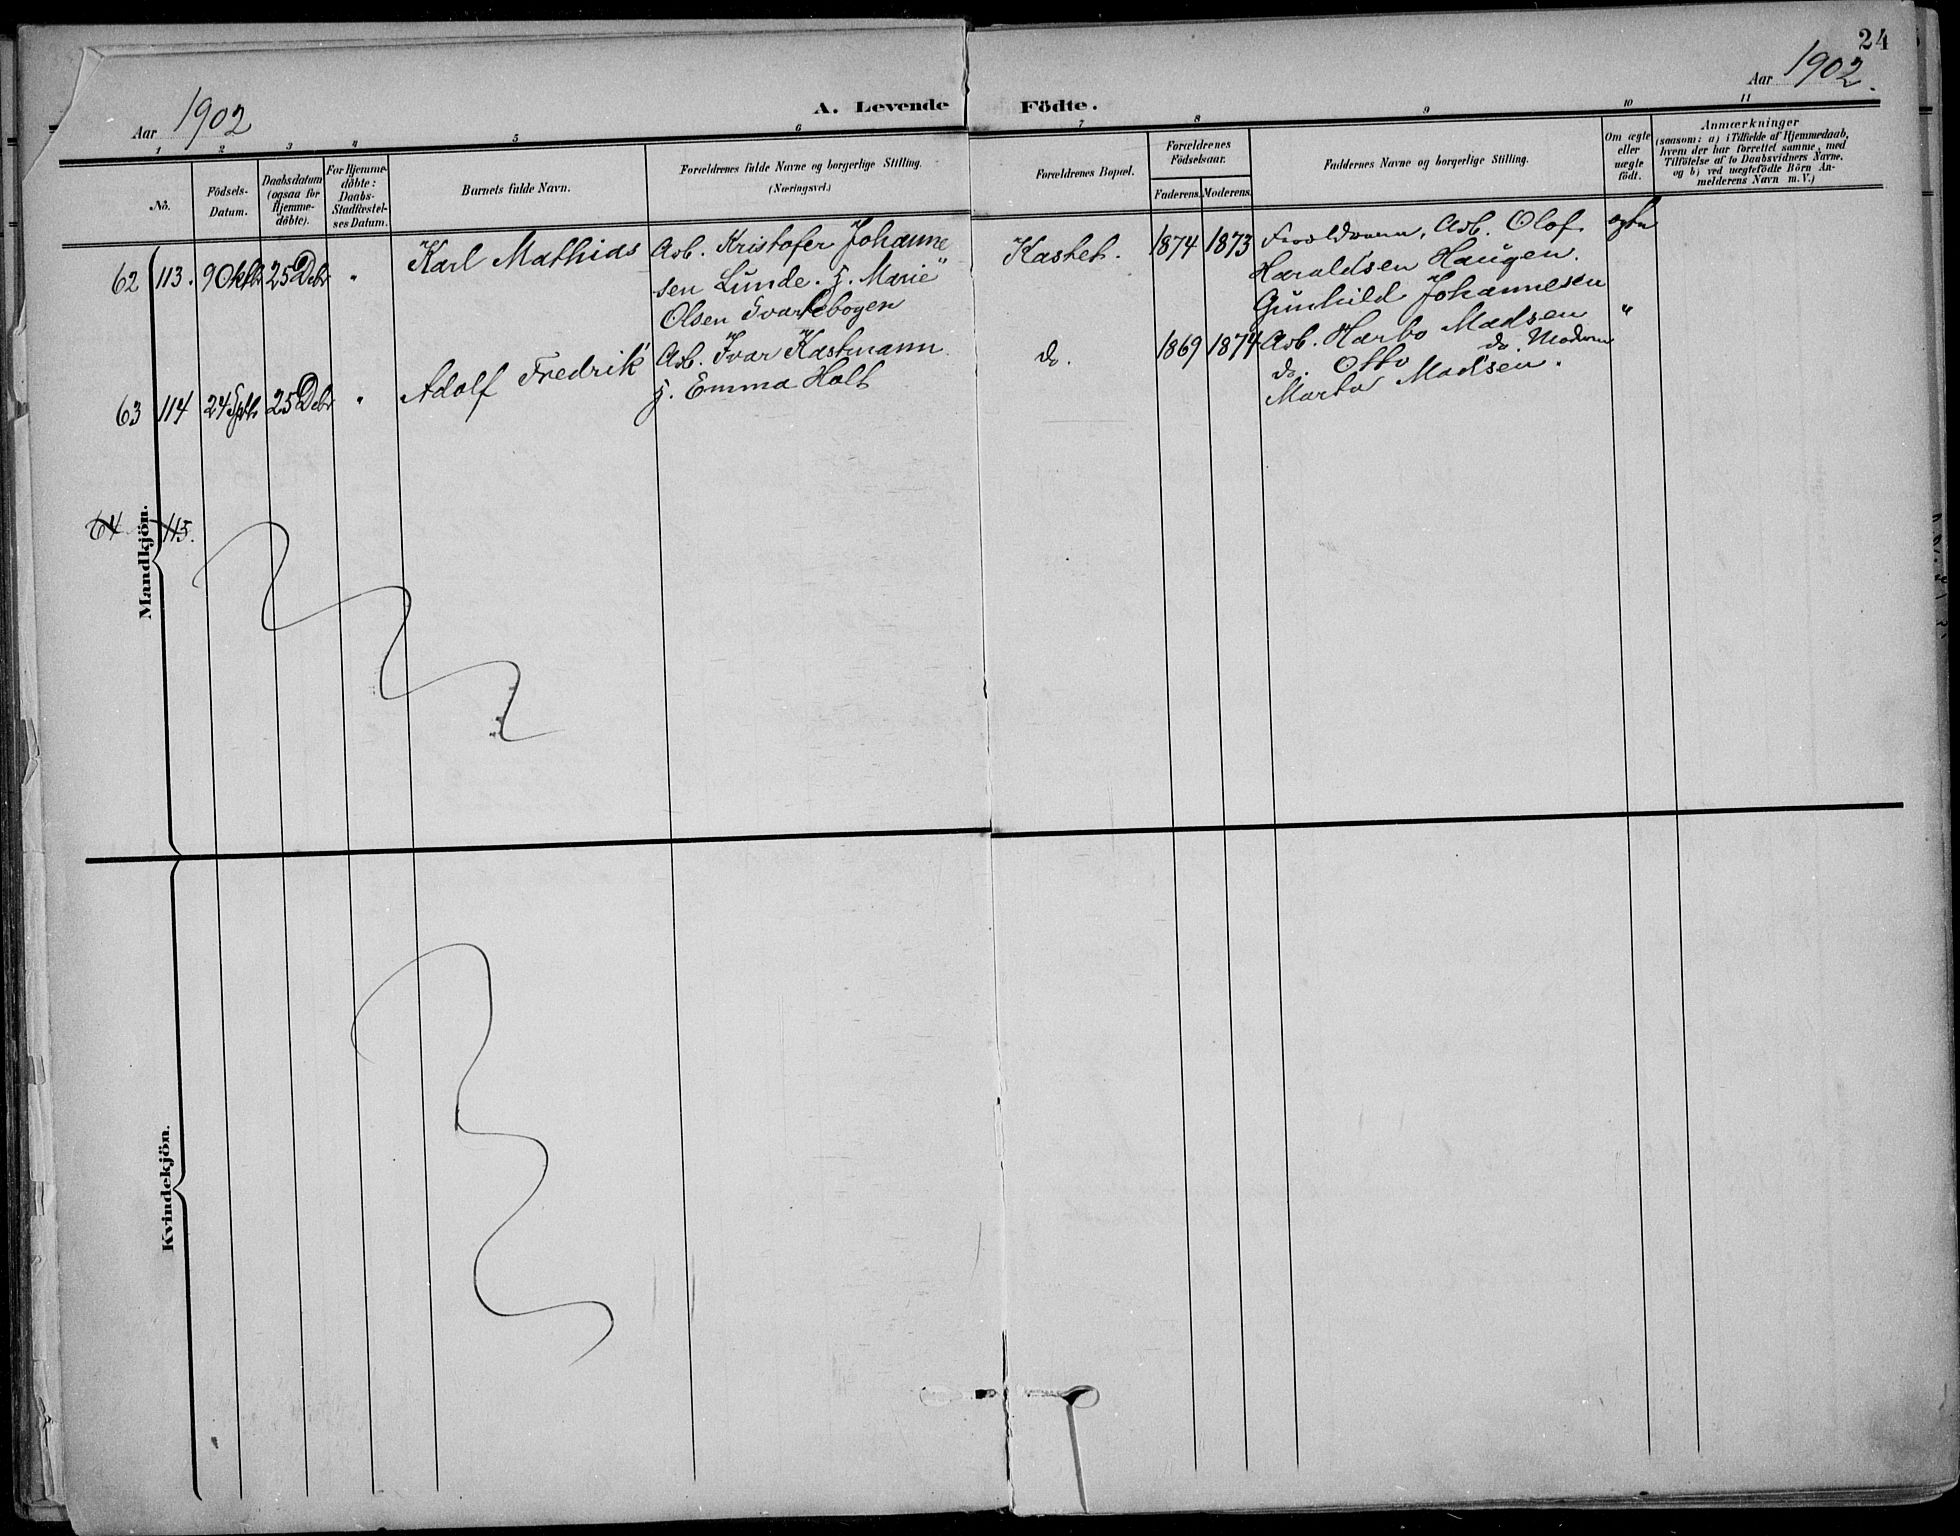 24
Aar 1902
A. Levende Födte.
Aar 1902.
1 2 3 4 5 6 7 8 9 10 11
No.
Födsels-
Datum.
Daabsdatum
(ogsaa for
Hjemme-
döbte).
For Hjemme-
döbte:
Daabs-
Stadfestel-
ses Datum.
Barnets fulde Navn.
Forældrenes fulde Navne og borgerlige Stilling.
(Næringsvei.)
Forældrenes Bopæl.
Forældrenes
Födselsaar.
Faderens. Moderens.
Faddernes Navne og borgerlige Stilling.
Om ægte
eller
uægte
födt.
Anmærkninger
(saasom: a) i Tilfælde af Hjemmedaab,
hvem der har forrettet samme, med
Tilföielse af to Daabsvidners Navne,
og b) ved uægtefödte Börn An-
melderens Navn m. V.)
Mandkjön.
62 113. 9 Oktbr 25 Debr " Karl Mathias
Arb. Kristofer Johanne
sen Lunde. g. Marie
Olsen Svartebogen
Kastet. 1874 1873
Forældrene, Arb. Olof
Haraldsen Haugen.
Gunhild Johannesen
ægte
63 114 24 Sptb 25 Debr " Adolf Fredrik
Arb. Ivar Kastmann
g. Emma Holt
do. 1869 1874
Arb. Harbo Madsen
do. Otto do. Moderen
Marta Madsen.
"
64 115.
Kvindekjön.